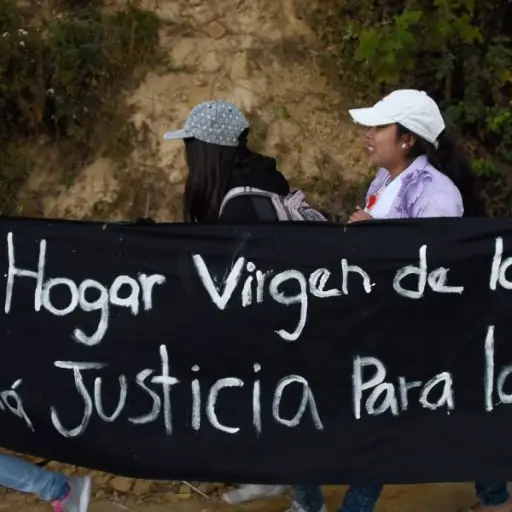 Hogar Virgen de
Justicia Para